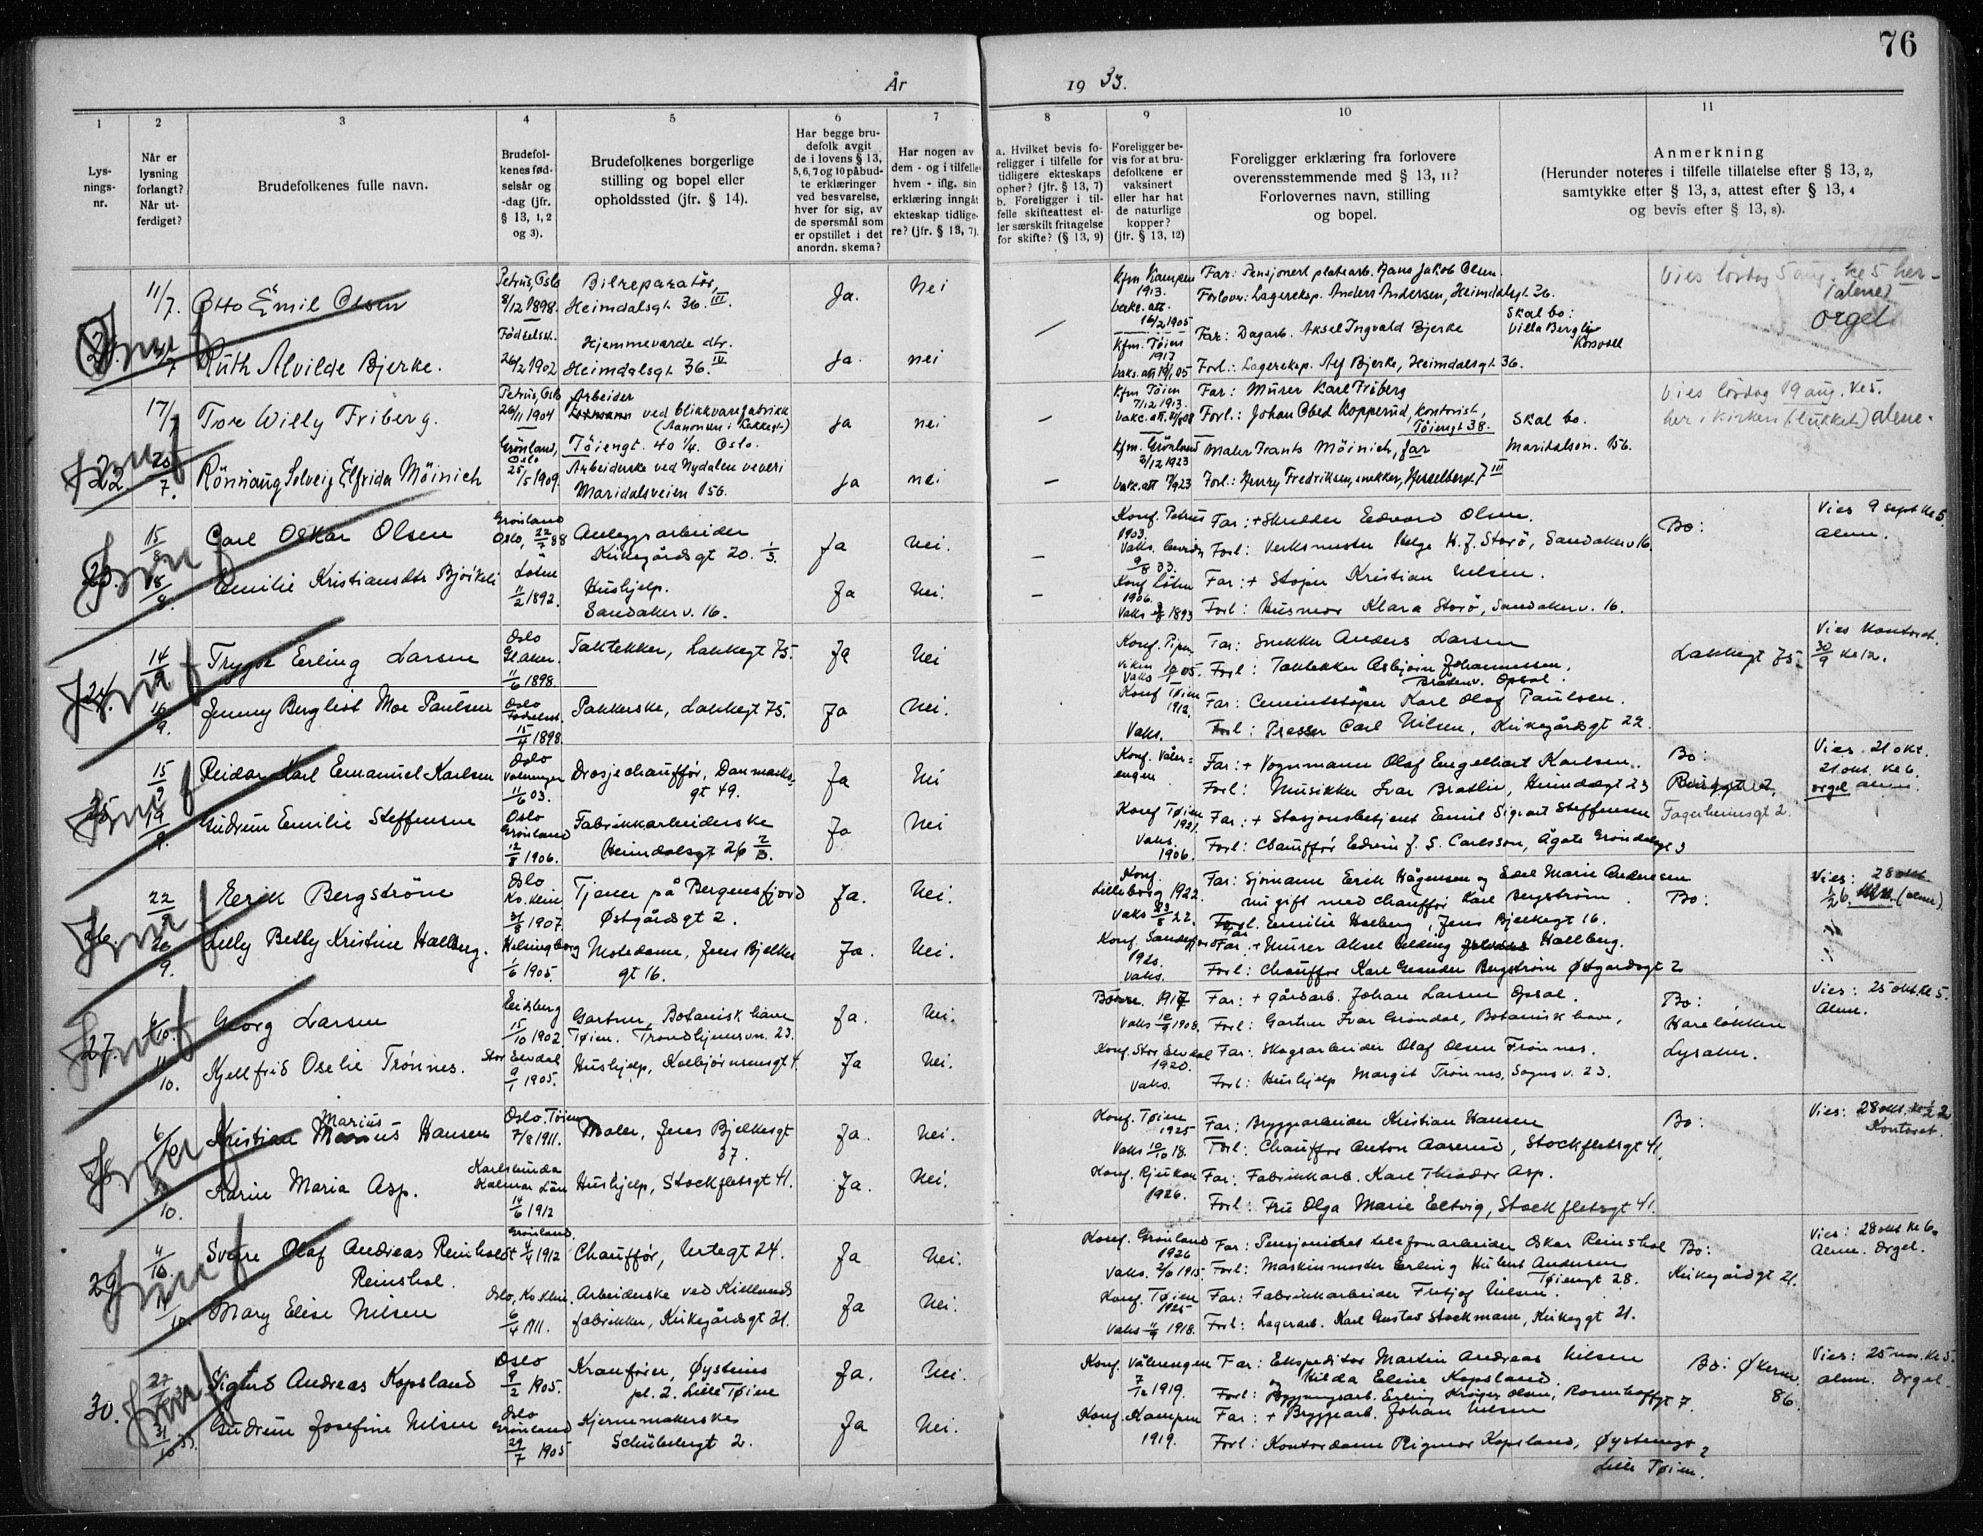 76
År 1933.
1 2 3 4 5 6 7 8 9 10 11
Lys-
nings-
nr.
Når er
lysning
forlangt?
Når ut-
ferdiget?
Brudefolkenes fulle navn.
Brudefol-
kenes fød-
selsår og
-dag (jfr.
§ 13, 1, 2
og 3).
Brudefolkenes borgerlige
stilling og bopel eller
opholdssted (jfr. § 14).
Har begge bru-
defolk avgit
de i lovens § 13,
5, 6, 7 og 10 påbud-
te erklæringer
ved besvarelse,
hver for sig, av
de spørsmål som
er opstillet i det
anordn. skema?
Har nogen av
dem - og i tilfelle
hvem - iflg. sin
erklæring inngått
ekteskap tidlige-
re? (jfr. § 13, 7).
a. Hvilket bevis fo-
religger i tilfelle for
tidligere ekteskaps
ophør? (jfr. § 13, 7)
b. Foreligger i til-
felle skifteattest el-
ler særskilt fritagelse
for skifte? (§ 13, 9)
Foreligger be-
vis for at bru-
defolkene er
vaksinert
eller har hat
de naturlige
kopper?
(jfr. § 13, 12)
Foreligger erklæring fra forlovere
overensstemmende med § 13, 11?
Forlovernes navn, stilling
og bopel.
Anmerkning
(Herunder noteres i tilfelle tillatelse efter § 13, 2,
samtykke efter § 13, 3, attest efter § 13, 4
og bevis efter § 13, 8).
11/7. Otto Emil Olsen
Petrus, Oslo
8/12 1898.
Bilreparatør,
Heimdalsgt 36. III.
Ja. Nei
Kfm Kampen
1913.
vaks. att.
16/2 1905
Far: Pensjonert platearb. Hans Jakob Olsen.
Forlov: Lagereksp. Anders Andersen, Heimdalsgt 36.
Skal bo:
Villa Bergly
Korsvoll
Vies lördag 5 aug. ke 5 her -
(alene)
orgel
Ruth Alvilde Bjerke.
Fødselsk.
26/2 1902
Hjemmeværde dtr.
Heimdalsgt 36. IV
Ja. nei
Kfm. Tøien
1917
Far: Dagarb. Aksel Ingvald Bjerke
Forl.: Lagereksp. Alf Bjerke, Heimdalsgt 36.
17/7 Tore Willy Friberg.
Petrus, Oslo
26/11 1904
Arbeider
ved blikkvarefabrikk
Töiengt. 40 1/4. Oslo.
Ja nei
Kfm Tøien
7/12 1913.
Far: Murer Karl Friberg
Forl.: Johan Obed Kopperud, kontorist,
Töiengt 38.
Skal bo.
Maridalsvn. 156.
Vies lördag 19 aug. ke 5.
her i kirken (lukket) alene.
22 Rönnaug Solveig Elfrida Möinich
Grönland,
Oslo
25/5 1909
Arbeiderske ved Nydalen veveri
Maridalsveien 156.
Ja nei
Kfm. Grönland
2/12 1923
Maler Frants Möinich, far
Forl: Henry Fredriksen, snekker, Hesselbergt. 7 III
23. 15/8 Carl Oskar Olsen
Grönland
Oslo, 22/7 88
Anleggsarbeider
Kirkegårdsgt 20. 1/3.
Ja Nei.
Konf. Petrus
1903.
9/8 33.
Far: + Skredder Edvard Olsen.
Forl: Verksmester Helge H. J. Storö, Sandakerv 16
Bo:
Vies 9 sept ke 5.
alm.
18/8. Emilie Kristiansdtr Bjövkeli
Løten
11/2 1892.
Hushjelp.
Sandaker v. 16.
Ja Nei.
Konf Löten
1906.
Far: + Stoper Kristian Nilsen.
Forl: Husmor Klara Storö, Sandaker v. 16.
24. 14/9 Trygve Erling Larsen
Oslo
Gl. Aker.
11/6 1898.
Taktekker, Lakkegt 75.
Ja Nei
Konf. Piper
viken
Far: Snekker Anders Larsen
Forl: Taktekker Asbjörn Johannessen,
Bråtenv. Opsal.
Lakkegt 75
Vies kontoret.
30/9 ke 12.
16/9. Jenny Bergliot Moe Paulsen
Oslo
Fødselsst.
15/4 1898.
Pakkerske, Lakkegt 75.
Ja Nei.
Konf Töien
1912.
Vaks.
Far: Cementstöper Karl Olaf Paulsen.
Forl: Presser Carl Nilsen, Kirkegårdsgt 22
25. 15/9 Reidar Karl Emanuel Karlsen
Oslo
Vålerengen
11/6 03.
Drosjechauffør, Danmarks-
gt 49.
Ja Nei
Konf. Våler=
engen
Far: + Vognmann Olaf Engelhart Karlsen.
Forl: Musikker Ivar Bratlie, Heimdasgt 23
Bo:
Fagerheimsgt 2.
Vies 21 okt.
21 okt. ke 6.
orgel alm.
19/9. Gudrun Emilie Steffensen
Oslo
Grönland
12/8 1906.
Fabrikkarbeiderske
Heimdalsgt 26 2/B.
Ja Nei
Konf Tøien
1921.
Vaks.
1906.
Far: + Stasjonsbetjent Emil Sigvart Steffensen
Forl: Chauffør Edvin J. S. Carlsson, Ågate Gröndalsgt 3
26. 22/9 Eerik Bergström
Oslo
31/8 1907.
Tjener på Bergensfjord
Østgårdsgt 2.
Ja. Nei.
Konf.
Lilleborg 1922.
Vaks 23/8 22.
Far: Sjömann Erik Hågensen og Edel Marie Andersen
nu gift med chauffør Karl Bergström.
Forl. Emilie Halberg, Jens Bjelkesgt 16.
Bo:
Vies: 28 okt
(alm)
26/9. Lilly Betsy Kristine Hallberg.
Helsingborg
1/6 1905.
Motedame, Jens Bjelkes
gt 16.
Ja. Nei.
Konf Sandefjord
1920.
Vaks.
Far: + Murer Aksel Hallberg.
Forl: Chauffør Karl Bergström Østgårdsgt 2
27. 6/10. Georg Larsen
Eidsberg
15/10 1902
Gartner, Botanisk have
Tøien. Trondhjemsvn. 23.
Ja. Nei.
Vaks 10/9 1908.
Far: + gårdsarb. Johan Larsen Opsal.
Forl: Gartner Ivar Gröndal, Botanisk have,
Bo:
Hareløkken
Lysaker.
Vies: 25 okt. ke 5.
Alm.
11/10. Kjellfrid Oselie Trönnes.
Stor Elvdal
9/1 1905.
Hushjelp, Kolbjörnsensgt 4.
Ja Nei.
Konf. Stor Elvdal
1920.
Vaks.
Far: Skogsarbeider Olaf Olsen Trönnes.
Forl: Hushjelp Margit Trönnes, Sogns v. 23.
28. 6/10 Kristian Marius Hansen
Marius
Oslo Tøien
7/8 1911.
Maler, Jens Bjelkesgt
37.
Ja. Nei.
Konf. Tøien
1925
Vaks 10/10 18.
Far: Bryggearbeider Kristian Hansen
Forl: Chauffør Anton Aarerud, Stockfletsgt 41.
Bo:
Vies: 28 okt. ke 1/2 2
Kontoret.
10. Karin Maria Asp.
Karlslunda
Kalmar Län
14/6 1912
Hushjelp, Stockfletsgt 41.
Ja. Nei.
Konf. Rjukan
1926.
Far: Fabrikkarb. Karl Theodor Asp.
Forl: Fru Olga Marie Eltvig, Stockfletsgt 41.
29. 11/10 Sverre Olaf Andreas Reinholdt
Reinshol.
Grönland
4/4 1912
Chauffør, Urtegt 24.
Ja Nei.
Konf. Grønland
1926
Vaks. 2/6 1915.
Far: Pensjonisthet telefonarbeider Oskar Reinshol
Forl: Maskinmester Erling Hubert Andersen
Tøiengt 28.
Bo:
Kirkegårdgt 21.
Vies: 28 okt ke 6.
Alm. Orgel.
14/10. Mary Elise Nilsen
6/4 1911.
Arbeiderske ved Kiellands
fabrikker, Kirkegårdsgt 21.
Ja Nei.
Konf. Tøien
1925
Vaks 11/9 1918.
Far: Fabrikkarbeider Fritjof Nilsen.
Forl: Lagerarb. Karl Gustav Stockmann, Kirkeggt 21.
30. 27/10 Sigurd Andreas Kopsland
Oslo
9/2 1905.
Kranfører, Øysteins
pl. 2. Lille Tøien
Ja. Nei.
Konf. Vålerengen
7/12 1919.
Far: Ekspeditør Martin Andreas Nilsen
og Hilda Eline Kopsland.
Forl: Bygningsarb. Erling Kröger Olsen, Rosenhoffgt 7.
Bo: Økernv.
86.
Vies: 25 nov. ke 5.
alm. Orgel.
31/10 33. Gudrun Josefine Nilsen
Oslo
Grönland
29/7 1905
Kjernemakerske
Schübelergt 2.
Ja Nei.
Konf. Kampen
1919.
Far: + Bryggearb. Johan Nilsen
Forl: Kontordame Rigmor Kopsland, Øysteinsgt 2
Lille Tøien.